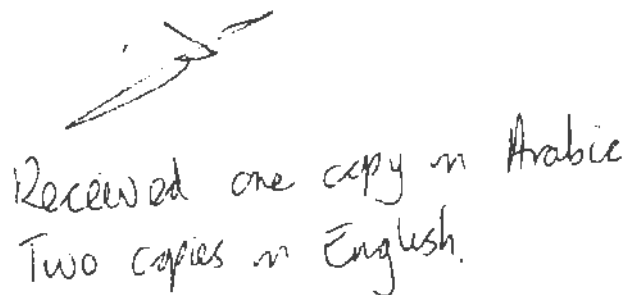 Received one copy in Arabic
Two copies in English.